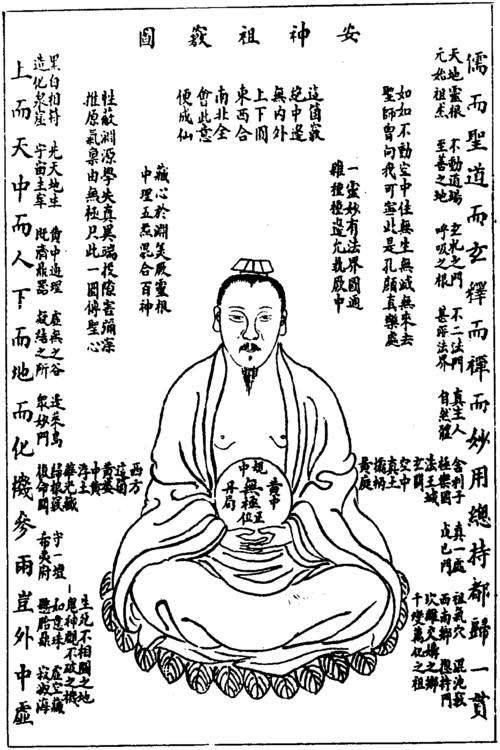 安神祖竅圖
儒而聖道而玄釋而禪而妙用總持都歸一貫
天地靈根
元始祖炁
不動道場
至善之地
玄牝之門
呼吸之根
不二法門
甚深法界
真主人
自然體
舍利子
極樂國
法王城
玄關
空中
真土
黃庭
真一處
戊己門
祖氣穴
西南鄉
坎離交媾之鄉
千變萬化之祖
混沌竅
總持門
如如不動空中住無生無滅無來去
聖師曾向我可寧此是孔顏真樂處
一靈妙有法界圓通
離種種邊允執厥中
這箇竅
絕中邊
無內外
上下圓
東西合
南北全
會此意
便成仙
藏心於淵美厥靈根
中理五炁混合百神
性蔽淵源學失真異端投隙害彌深
推原氣稟由無極只此一圖傳聖心
黃中
正位
規中
無極
丹扃
黑白相符
造化泉窟
先天地生
宇宙主宰
黃中通理
既濟鼎器
虛無之谷
凝結之所
蓬萊島
眾妙門
西方
這箇
黃婆
中黃
淨土
華光藏
歸根竅
復命關
守一壇
希夷府
生死不相關之地
鬼神覷不破之機
如意珠
懸胎鼎
虛空藏
寂滅海
上而天中而人下而地而化機參兩豈外中虛